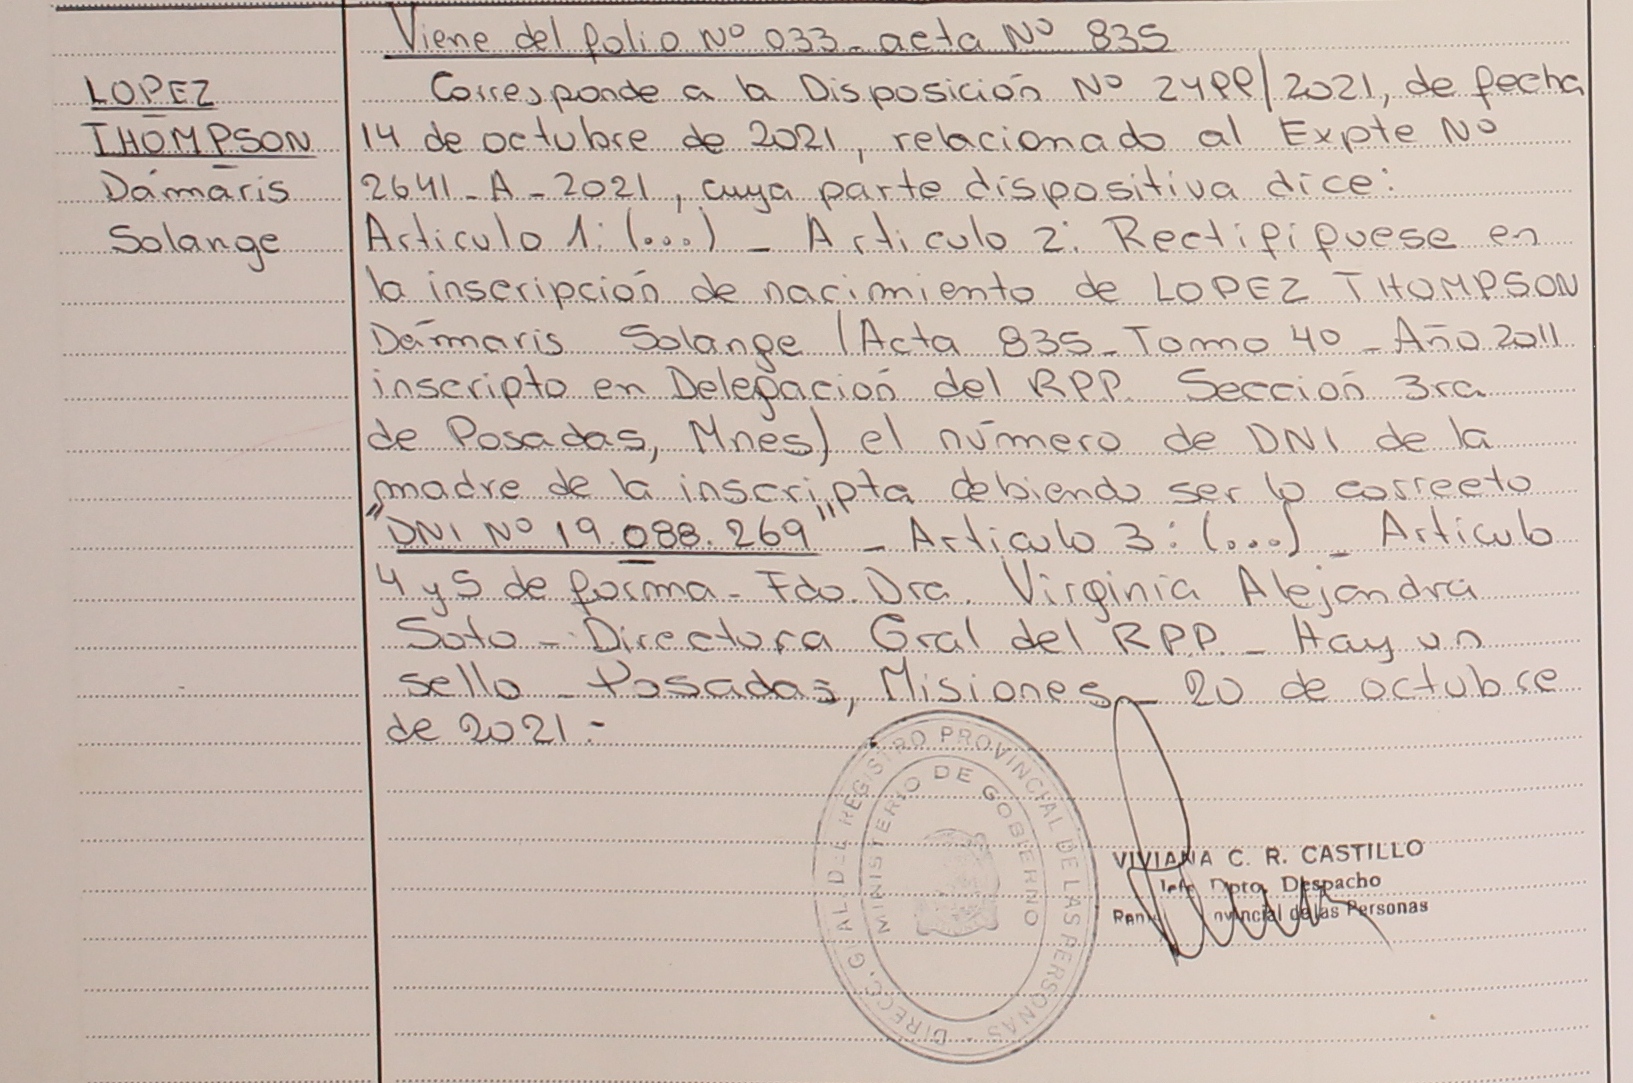 Viene del folio Nº 033 - acta Nº 835
LOPEZ
THOMPSON
Dámaris
Solange
Corresponde a la Disposición Nº 2499/2021, de fecha
14 de octubre de 2021, relacionado al Expte Nº
2641 - A - 2021, cuya parte dispositiva dice:
Artículo 1: (...) - Artículo 2: Rectifíquese en
la inscripción de nacimiento de LOPEZ THOMPSON
Dámaris Solange (Acta 835 - Tomo 40 - Año 2011
inscripto en Delegación del RPP. Sección 3ra
de Posadas, Mnes) el número de DNI de la
madre de la inscripta debiendo ser lo correcto
"DNI Nº 19.088.269" - Artículo 3: (...) - Artículo
4 y 5 de forma - Fdo. Dra. Virginia Alejandra
Soto - Directora Gral del RPP. - Hay un
sello - Posadas, Misiones - 20 de octubre
de 2021.-
DIRECC. GRAL. DEL REGISTRO PROVINCIAL DE LAS PERSONAS
MINISTERIO DE GOBIERNO
VIVIANA C. R. CASTILLO
Jefe Dpto. Despacho
Provincial de las Personas